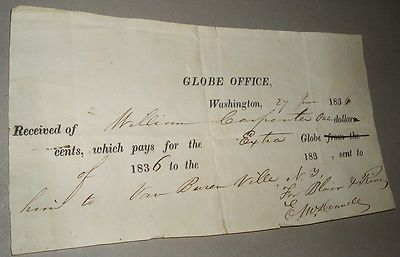 GLOBE OFFICE,
Washington, 27 June 1836
Received of William Carpenter One dollar
cents, which pays for the Extra Globe from the
of 1836 to the 183 , sent to
him to Van Buren Ville, N.Y.
For Blair & Rives
E. McDonnell